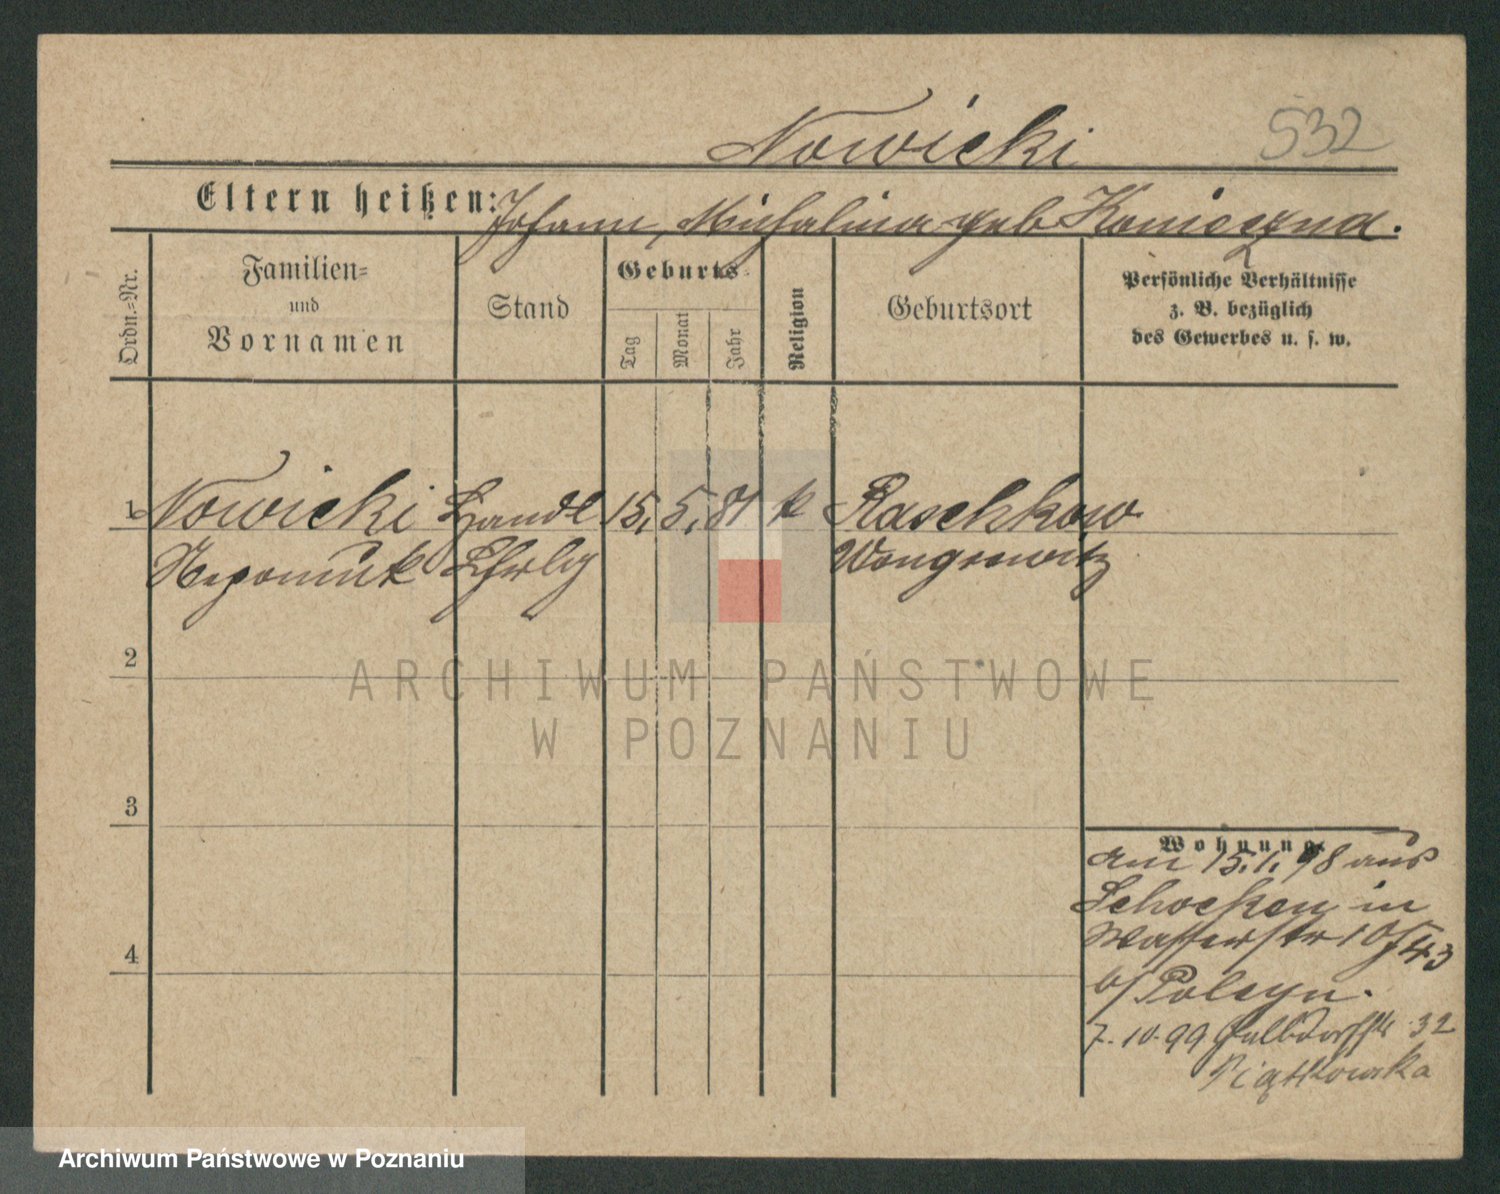 Nowicki 532
Eltern heißen: Johann, Michalina geb Konieczna.
Ordn.=Nr.
Familien=
und
Vornamen
Stand
Geburts=
Tag
Monat
Jahr
Religion
Geburtsort
Persönliche Verhältnisse
z. B. bezüglich
des Gewerbes u. s. w.
1 Nowicki Handl 15. 5. 81 k Raschkow
Nepomuk Lhrlg Wongrowitz
2
3
4
Wohnung
am 15.1.98 aus
Schocken in
Wasserstr 10/43
b/ Polcyn.
7.10.99 Halbdorfstr 32
Piątkowska
ARCHIWUM PAŃSTWOWE
W POZNANIU
Archiwum Państwowe w Poznaniu